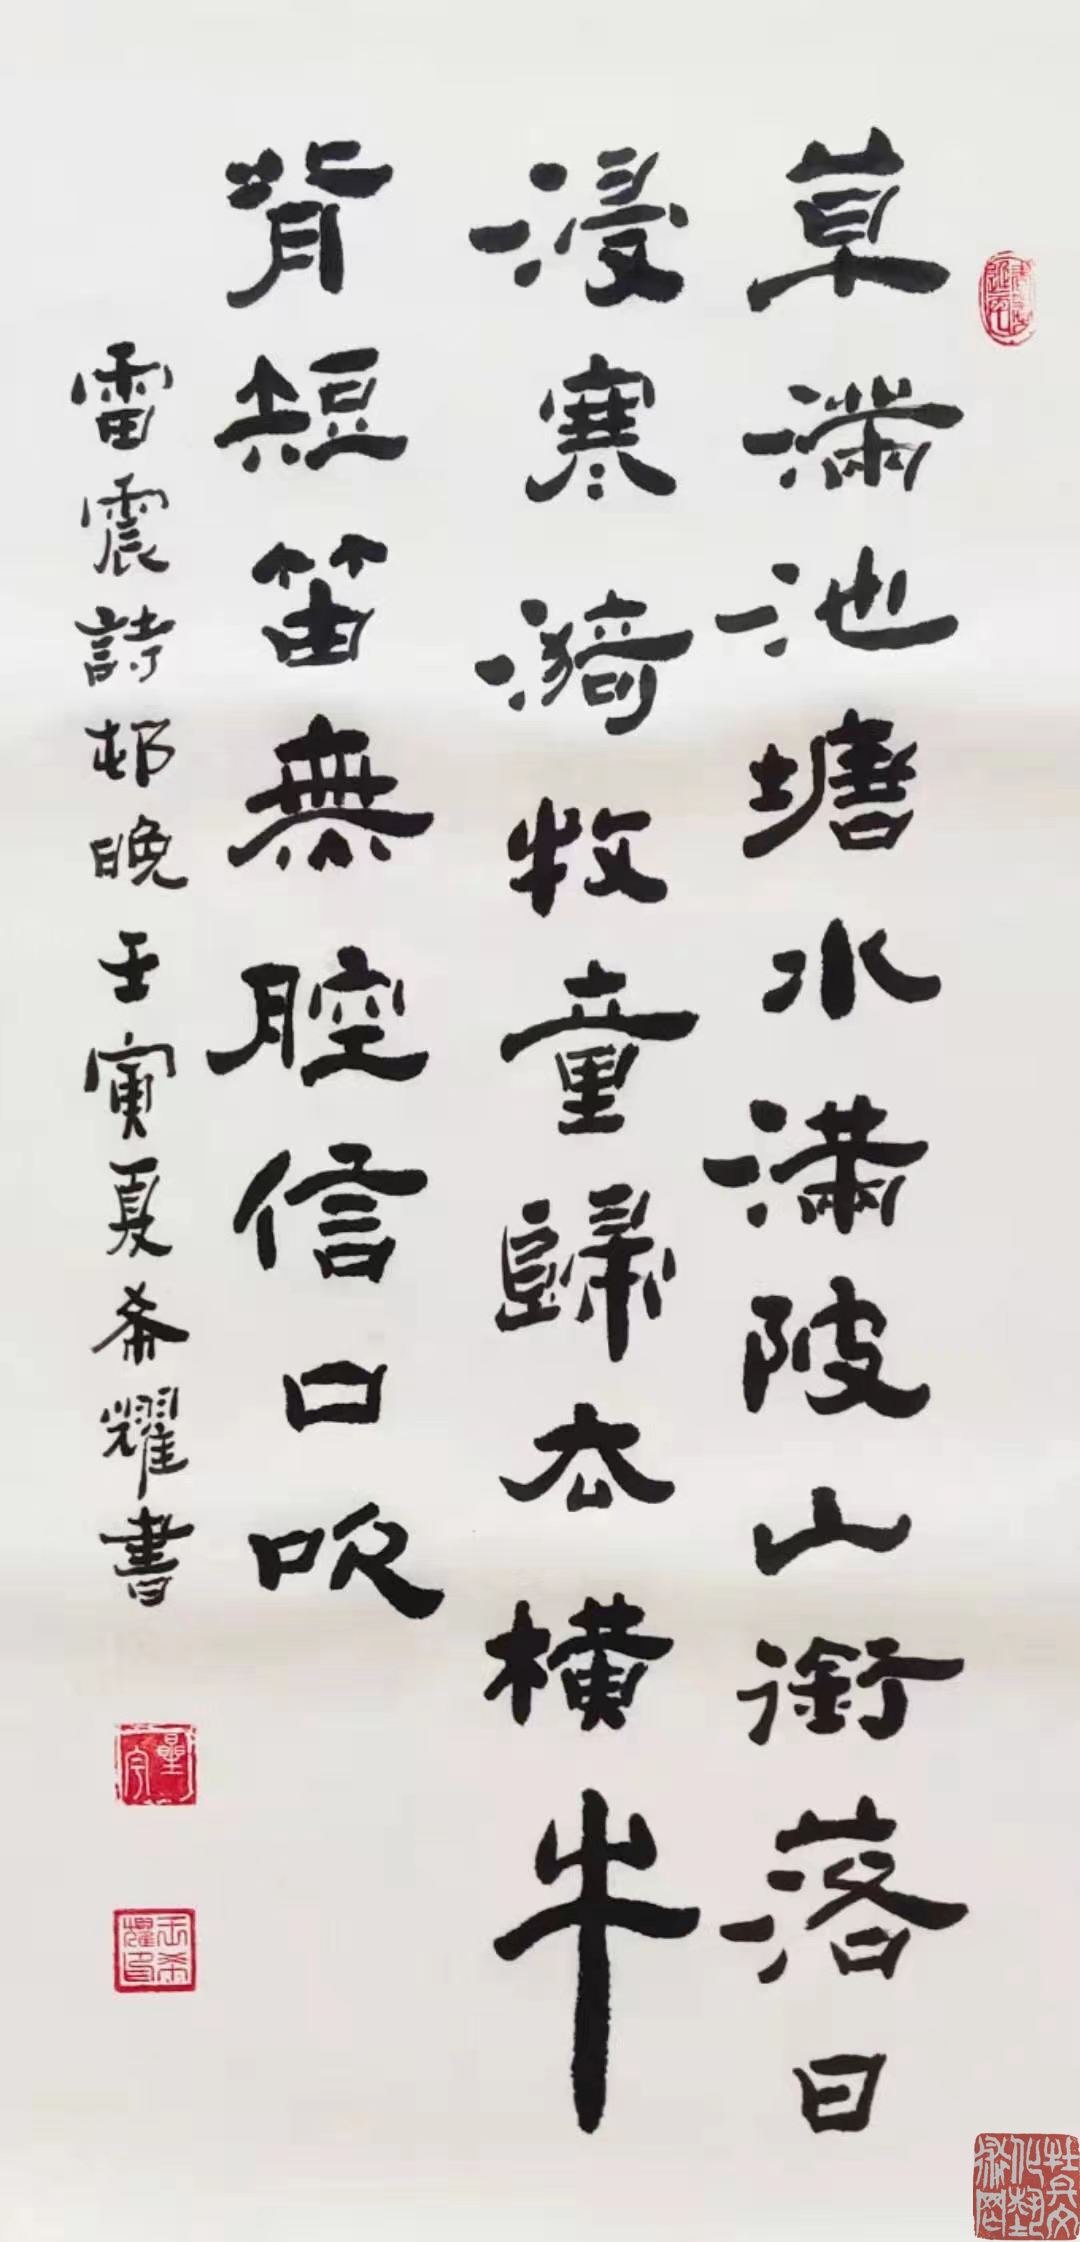 草滿池塘水滿陂山銜落日
浸寒漪牧童歸去橫牛
背短笛無腔信口吹
雷震詩邨晚壬寅夏希耀書